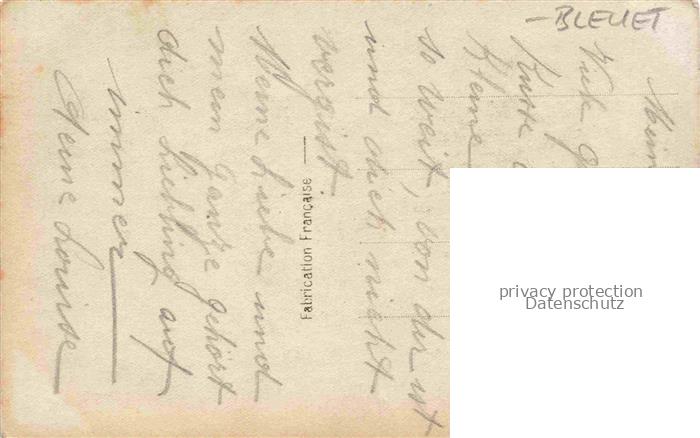 – BLEUET
Viele
Küsse
Kleine
so weit, von dir ist
und dich nicht
vergist
Meine Liebe und
mein ganze gehört
dich Liebling auf
immer
Deine Louise
Fabrication Française
privacy protection
Datenschutz